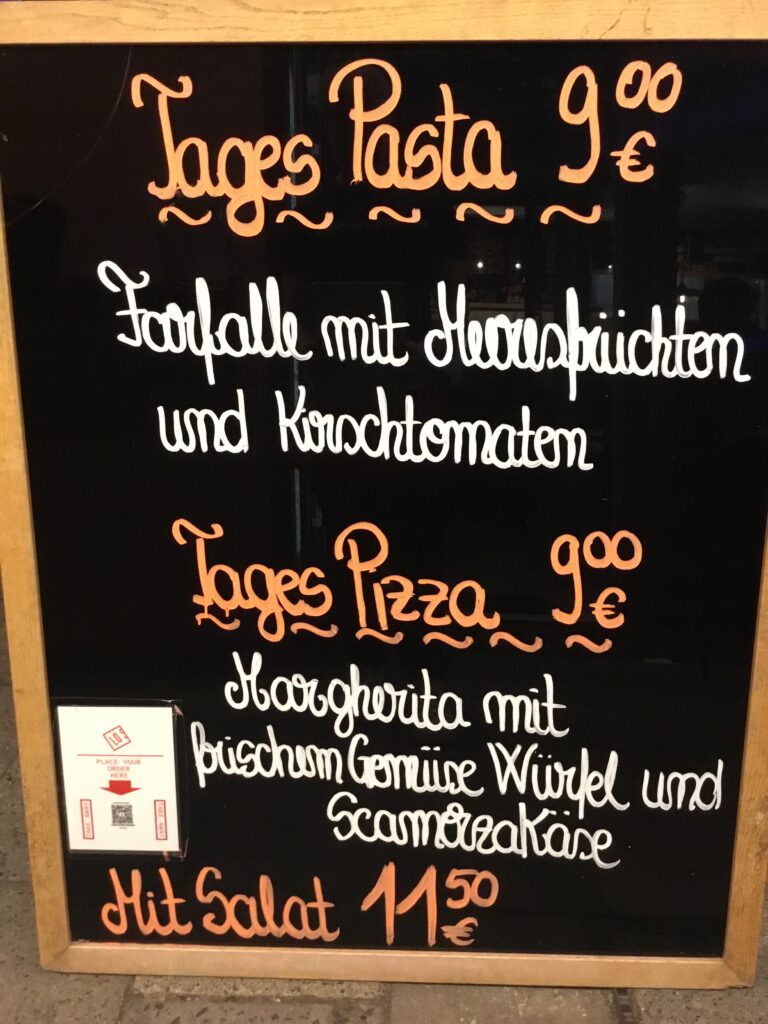 Tages Pasta 9⁰⁰ €
Farfalle mit Meeresfrüchten
und Kirschtomaten
Tages Pizza 9⁰⁰ €
Margherita mit
frischem Gemüse Würfel und
ScamorzaKäse
Mit Salat 11⁵⁰ €
PLACE YOUR
ORDER
HERE
TAKE AWAY
TAKE AWAY